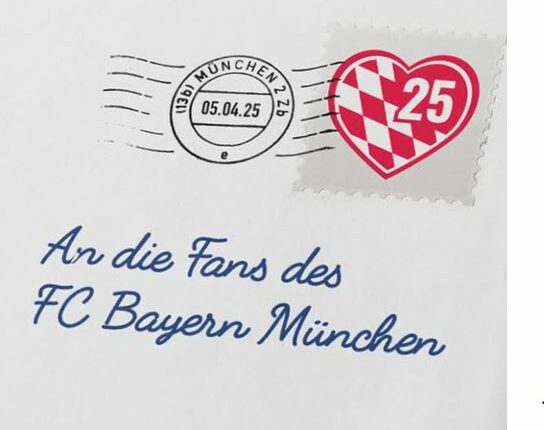 (13b) MÜNCHEN 2 Zb
05.04.25
e
25
An die Fans des
FC Bayern München